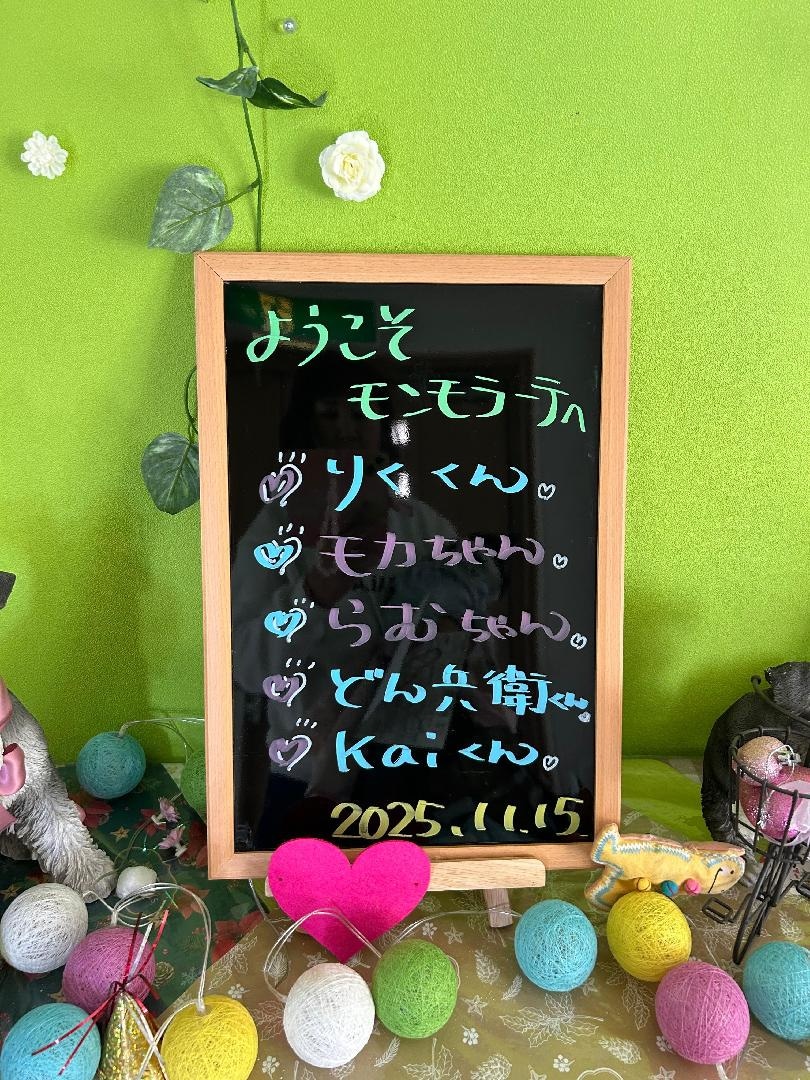 ようこそ
モンモラーテへ
りくくん
モカちゃん
らむちゃん
どん兵衛くん
Kaiくん
2025.11.15